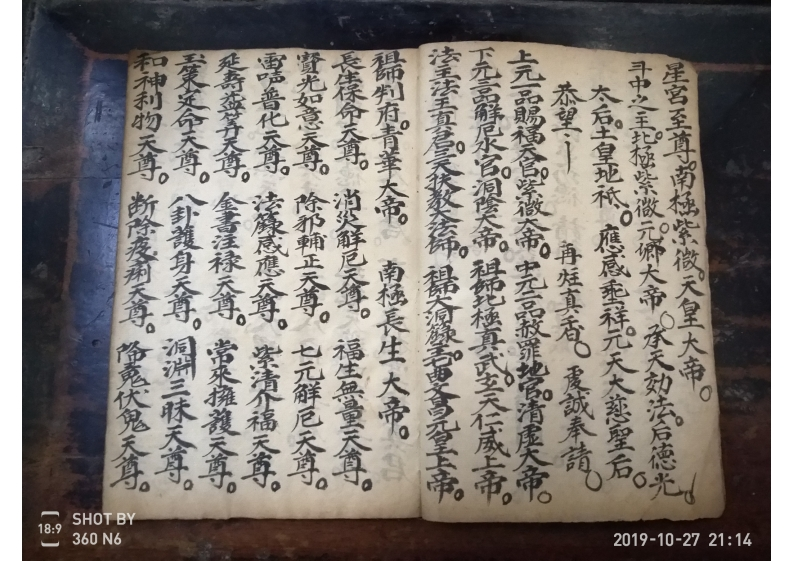 星宮至尊。南極紫微。天皇大帝。
斗中之主。北極紫微元卿大帝。承天効法。后德光
大。后土皇地祇。應感垂祥。元天大慈聖后。
恭望 再炷真香。虔誠奉請。
上元一品賜福天官。紫微大帝。中元一品赦罪地官。清虛大帝。
下元一品解厄水官。洞陰大帝。祖師北極真武。玄天仁威上帝。
法主法王真君。三天扶教大法師。祖師大洞籙主。更文昌元皇上帝。
祖師判府青華大帝。 南極長生大帝。
長生保命天尊。 消災解厄天尊。 福生無量天尊。
寶光如意天尊。 除邪輔正天尊。 七元解厄天尊。
雷声普化天尊。 法籙感應天尊。 紫清介福天尊。
延壽益筭天尊。 金書注禄天尊。 常來擁護天尊。
玉策延命天尊。 八卦護身天尊。 洞淵三昧天尊。
和神利物天尊。 断除疫痢天尊。 降魔伏鬼天尊。
18:9 SHOT BY
360 N6
2019-10-27 21:14